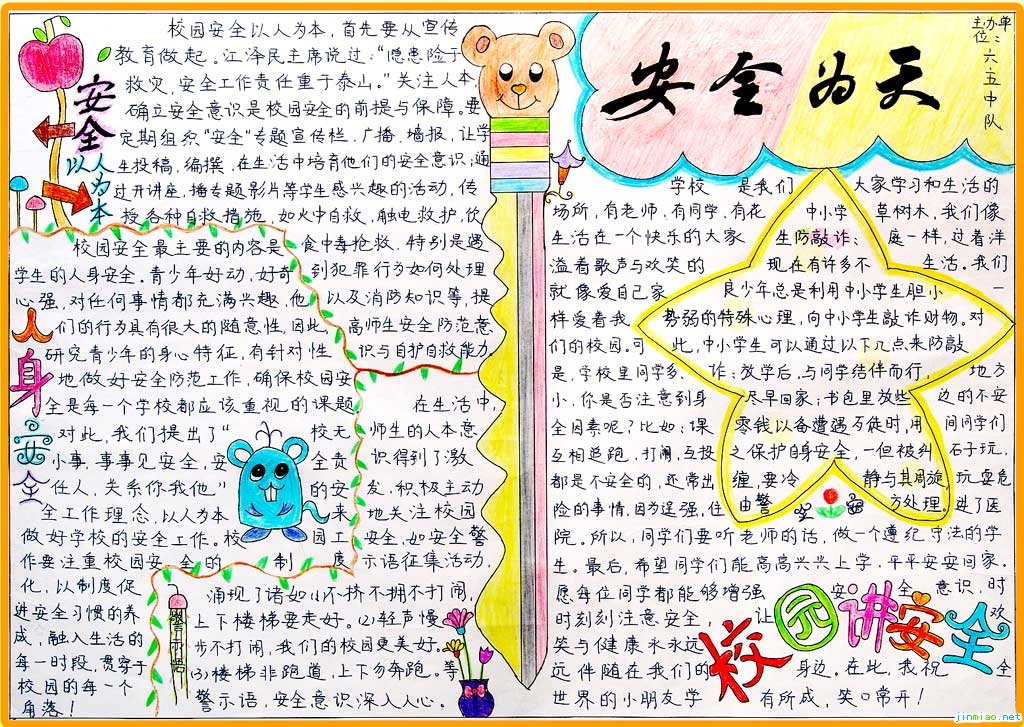 安全
以人为本
校园安全以人为本，首先要从宣传
教育做起。江泽民主席说过：“隐患险于
救灾，安全工作责任重于泰山。”关注人本，
确立安全意识是校园安全的前提与保障。要
定期组织“安全”专题宣传栏，广播、墙报，让学
生投稿，编撰，在生活中培育他们的安全意识；通
过开讲座、播专题影片等学生感兴趣的活动，传
授各种自救措施，如火中自救，触电救护，饮
食中毒抢救，特别是遇
到犯罪行为如何处理
以及消防知识等，提
高师生安全防范意
识与自护自救能力。
人身安全
校园安全最主要的内容是
学生的人身安全。青少年好动，好奇
心强，对任何事情都充满兴趣，他
们的行为具有很大的随意性，因此，
研究青少年的身心特征，有针对性
地做好安全防范工作，确保校园安
全是每一个学校都应该重视的课题
对此，我们提出了“校无
小事，事事见安全，安全责
任人，关系你我他”的安
全工作理念，以人为本来
做好学校的安全工作。校园工
作要注重校园安全的制度
化，以制度促
进安全习惯的养
成，融入生活的
每一时段，贯穿于
校园的每一个
角落！
警示语
在生活中，
师生的人本意
识得到了激
发，积极主动
地关注校园
安全，如安全警
示语征集活动，
涌现了诸如(1)不挤不拥不打闹，
上下楼梯要走好。(2)轻声慢
步不打闹，我们的校园更美好。
(3)楼梯非跑道，上下勿奔跑。等
警示语，安全意识深入人心。
安全为天
主办单位：六五中队
学校是我们大家学习和生活的
场所，有老师，有同学，有花草树木，我们像
生活在一个快乐的大家庭一样，过着洋
溢着歌声与欢笑的生活。我们
就像爱自己家一
样爱着我
们的校园。可
是，学校里同学多，地方
小，你是否注意到身边的不安
全因素呢？比如：课间同学们
互相追跑，打闹，互投石子玩，
都是不安全的，还常出玩耍危
险的事情，因为逞强，住进了医
院。所以，同学们要听老师的话，做一个遵纪守法的学
生。最后，希望同学们能高高兴兴上学，平平安安回家。
愿每位同学都能够增强安全意识，时
时刻刻注意安全，让欢
笑与健康永永远
远伴随在我们的身边。在此，我祝全
世界的小朋友学有所成，笑口常开！
中小学
生防敲诈：
现在有许多不
良少年总是利用中小学生胆小
势弱的特殊心理，向中小学生敲诈财物。对
此，中小学生可以通过以下几点来防敲
诈：放学后，与同学结伴而行，
尽早回家；书包里放些
零钱以备遭遇歹徒时，用
之保护自身安全，一但被纠
缠，要冷静与其周旋
由警方处理。
校园讲安全
jinmiao.net